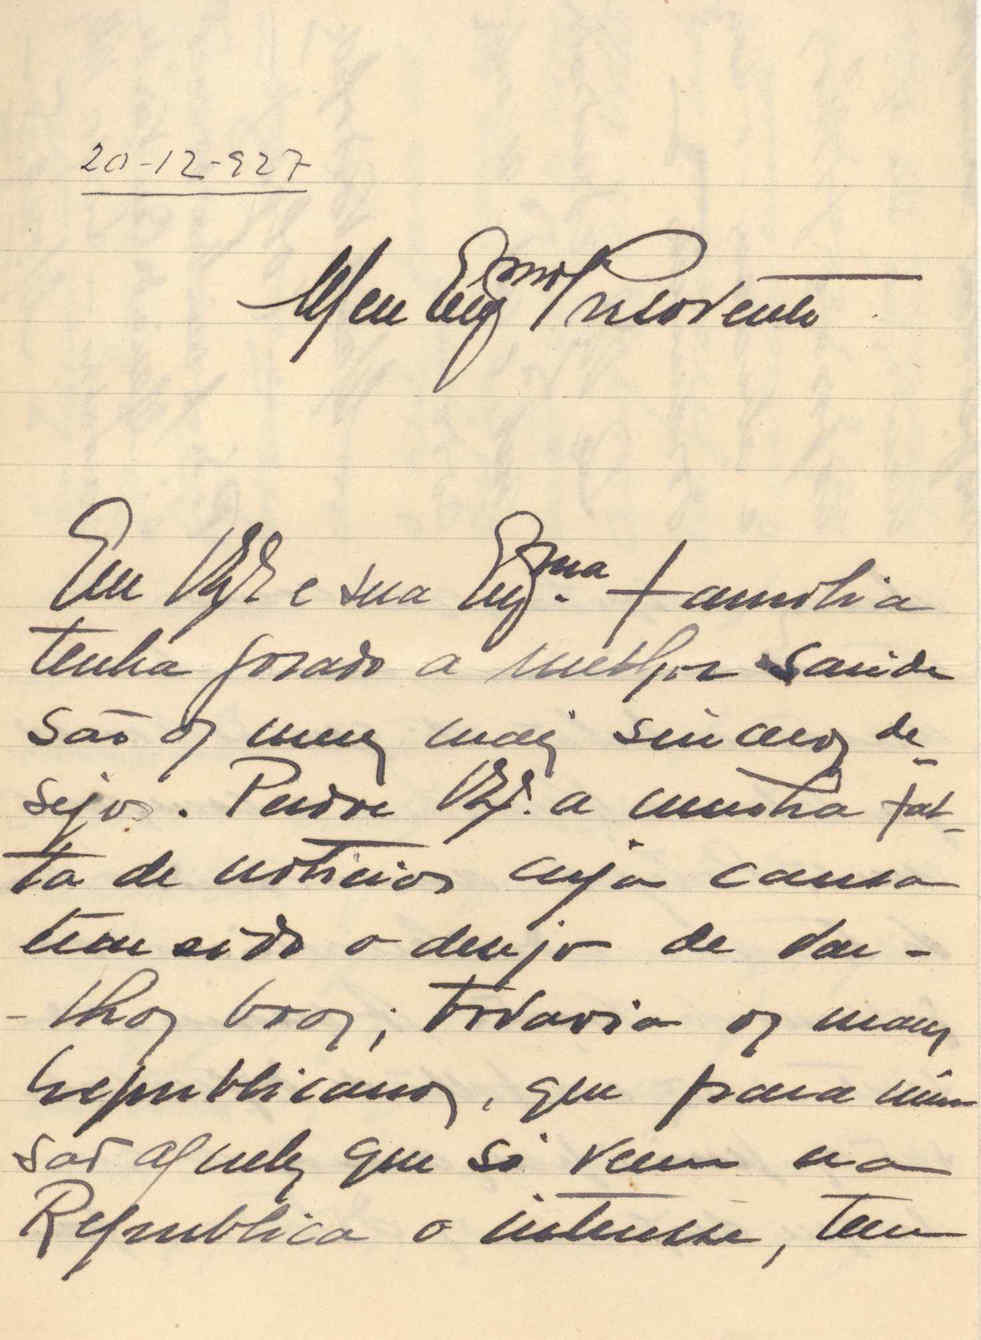 20-12-927
Meu Exmo Presidente
Que V. Ex.ª e sua Exma. familia
tenha gosado a melhor saude
são os meus mais sinceros de-
sejos. Perdoe V. Ex.ª a minha fal-
ta de noticias cuja causa
tem sido o desejo de dar-
-lhas boas; todavia os maus
republicanos, que para mim
são aqueles que só veem na
Republica o interesse, tem